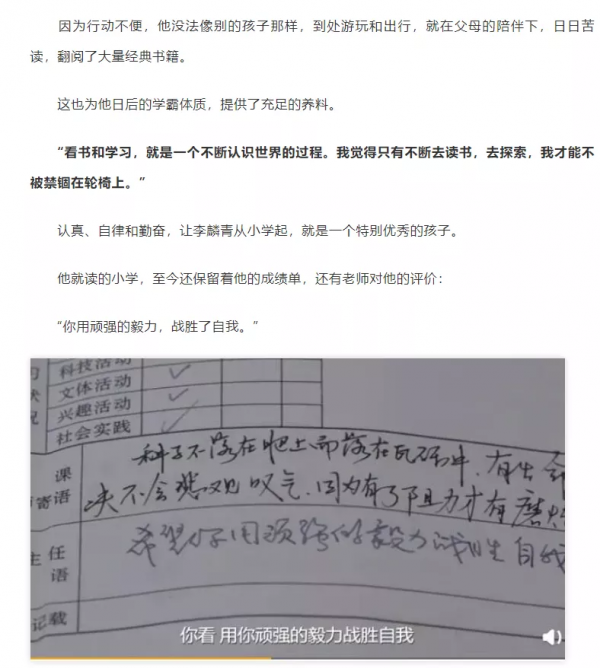 因为行动不便，他没法像别的孩子那样，到处游玩和出行，就在父母的陪伴下，日日苦
读，翻阅了大量经典书籍。
这也为他日后的学霸体质，提供了充足的养料。
“看书和学习，就是一个不断认识世界的过程。我觉得只有不断去读书，去探索，我才能不
被禁锢在轮椅上。”
认真、自律和勤奋，让李麟青从小学起，就是一个特别优秀的孩子。
他就读的小学，至今还保留着他的成绩单，还有老师对他的评价：
“你用顽强的毅力，战胜了自我。”
科技活动
文体活动
兴趣活动
社会实践
况
课
寄语
种子不落在肥土而落在瓦砾中，有生命
决不会悲观叹气，因为有了阻力才有磨
主任
语
希望你用顽强的毅力战胜自我
记载
你看 用你顽强的毅力战胜自我